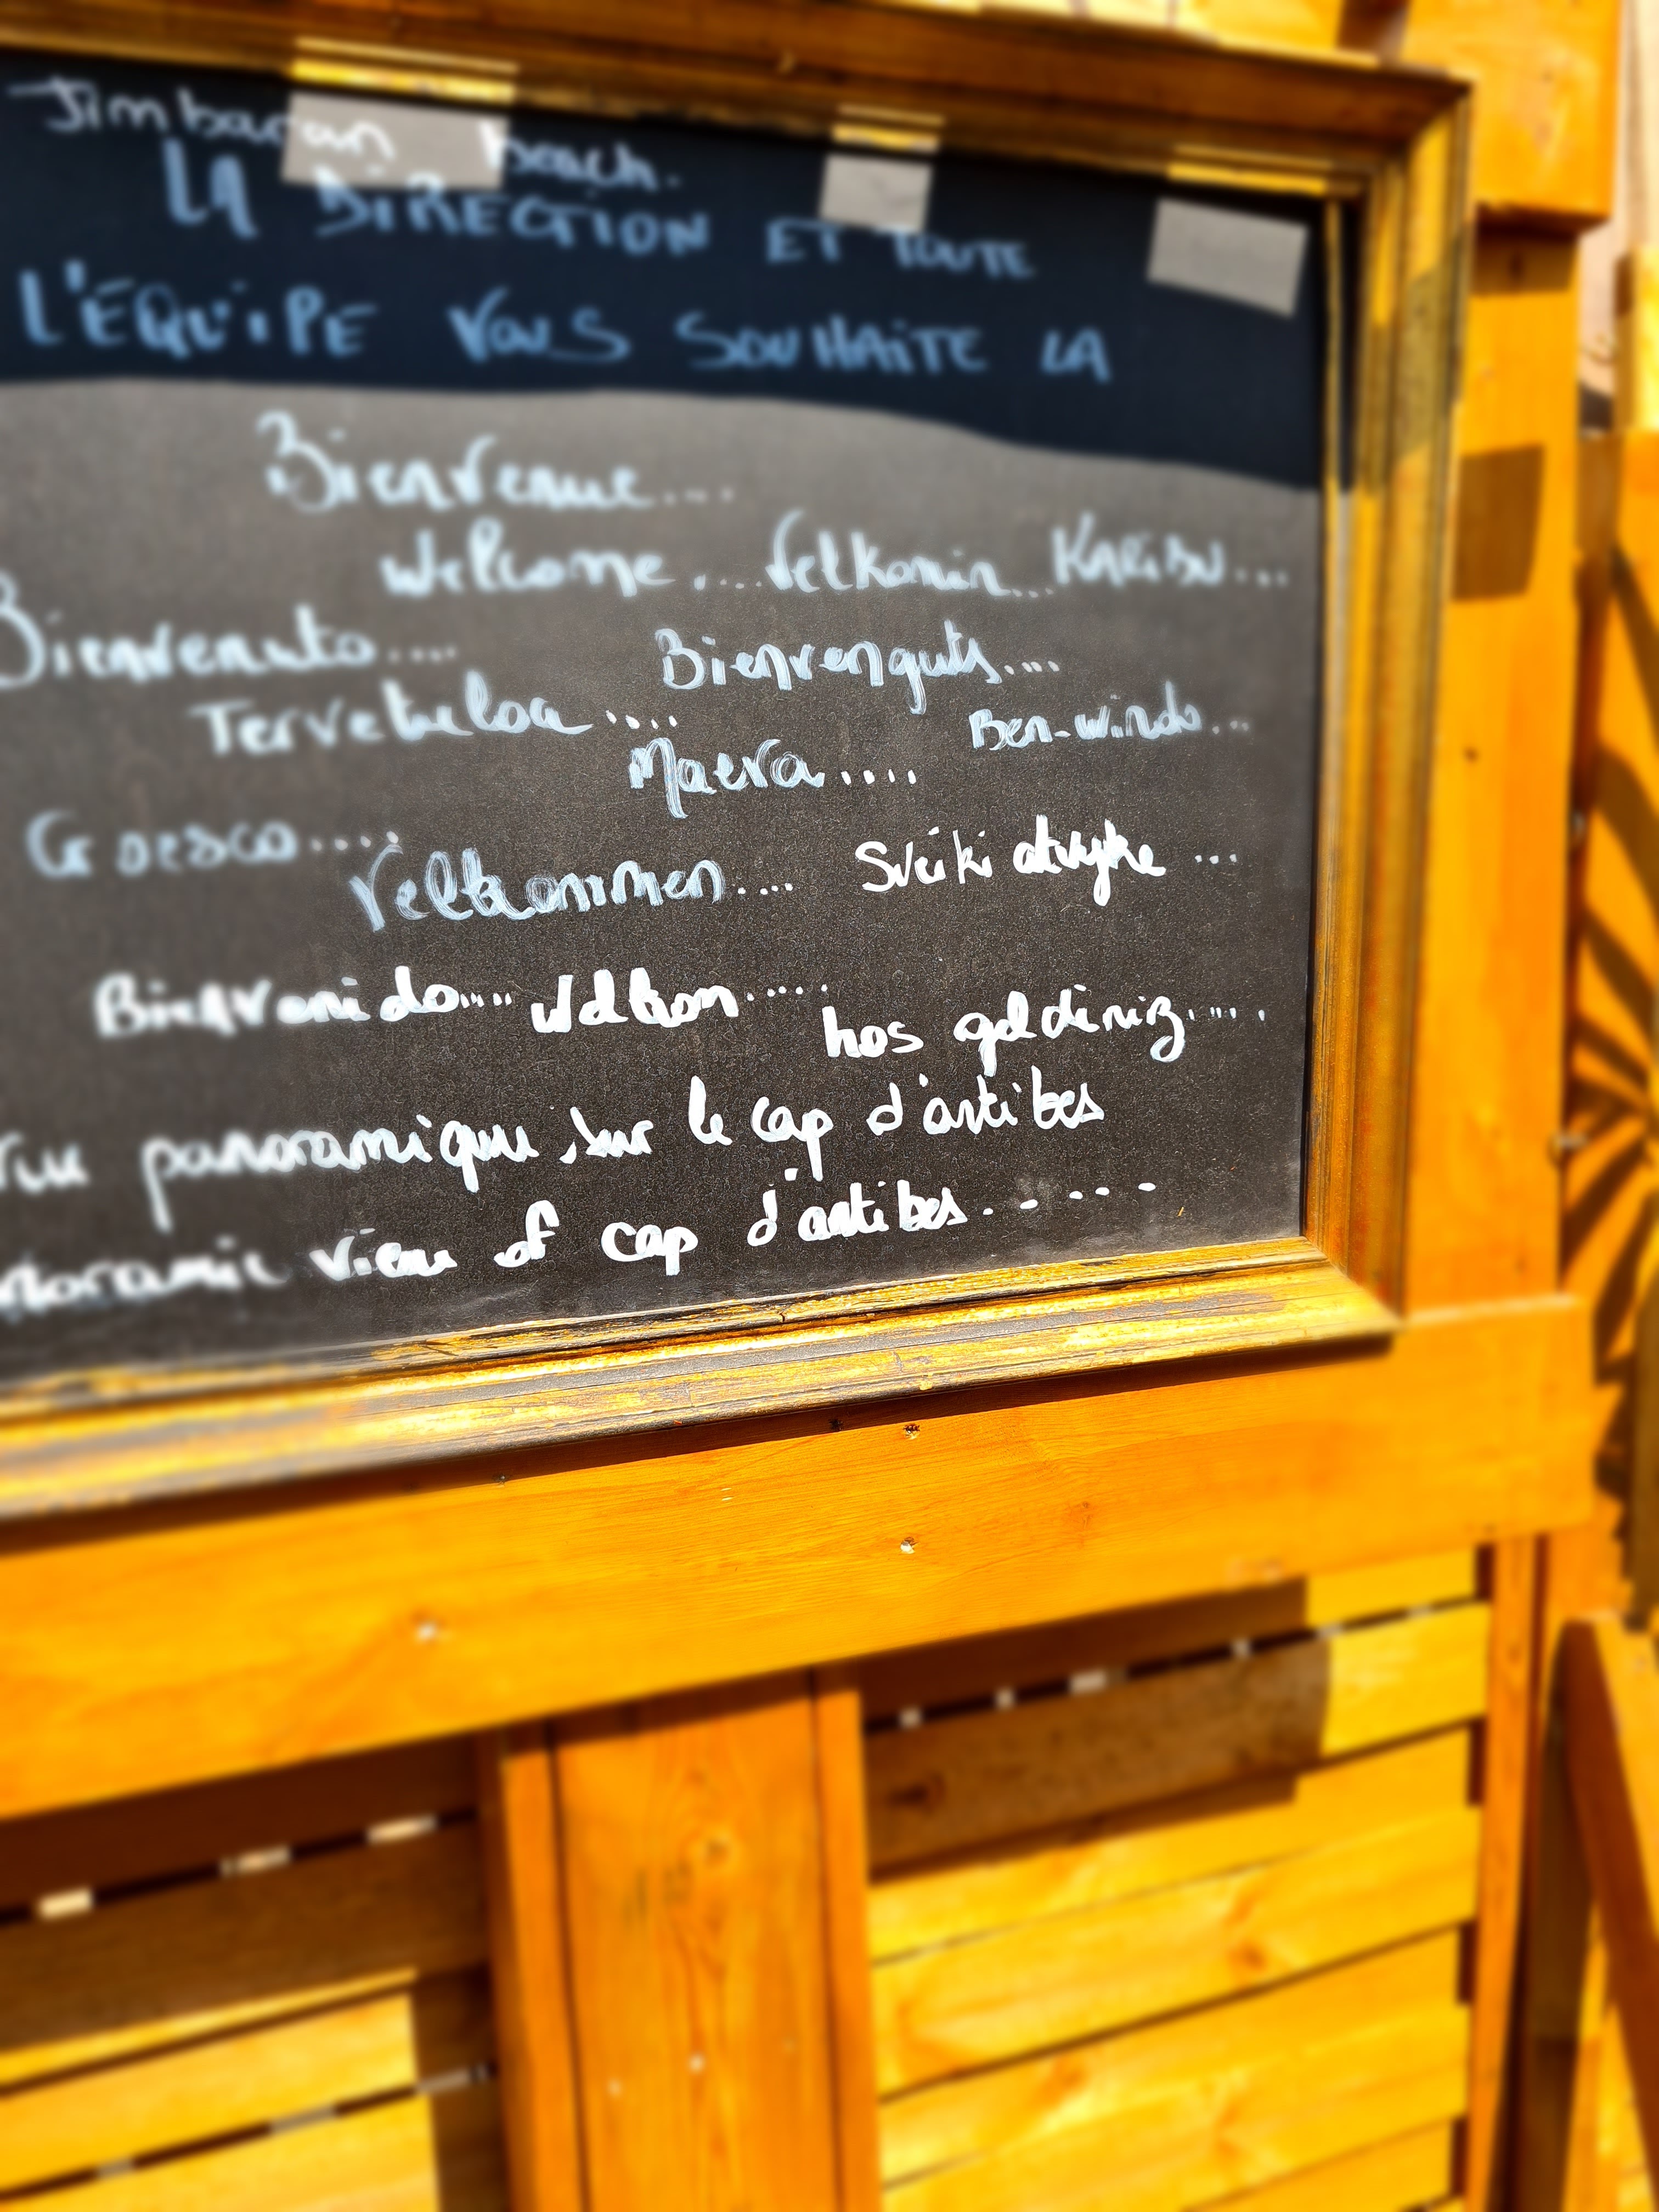 Jimbaran beach.
LA DIRECTION ET TOUTE
L'ÉQUIPE VOUS SOUHAITE LA
Bienvenue....
Welcome.... Velkomin... KARIBU....
Bienvenuto.... Bienvenguts....
Tervetuloa.... Ben-windo...
Maeva....
Croesco....
Velkommen.... Sveiki atvyke ...
Bienvenido..... Welkom.....
hos geldiniz.....
Vue panoramique sur le cap d'antibes
view of cap d'antibes.....